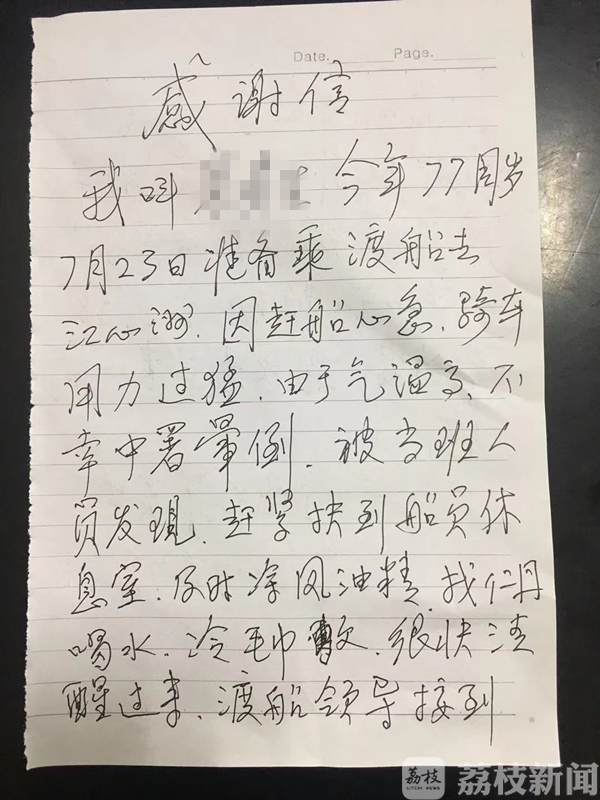 Date. Page.
感谢信
我叫 今年77周岁
7月23日准备乘渡船去
江心洲.因赶船心急.骑车
用力过猛.由于气温高、不
幸中署晕倒.被当班人
员发现.赶紧扶到船员休
息室.及时涂风油精.找仁丹
喝水.冷毛巾敷.很快清
醒过来.渡船领导接到
荔枝
LITCHI NEWS
荔枝新闻